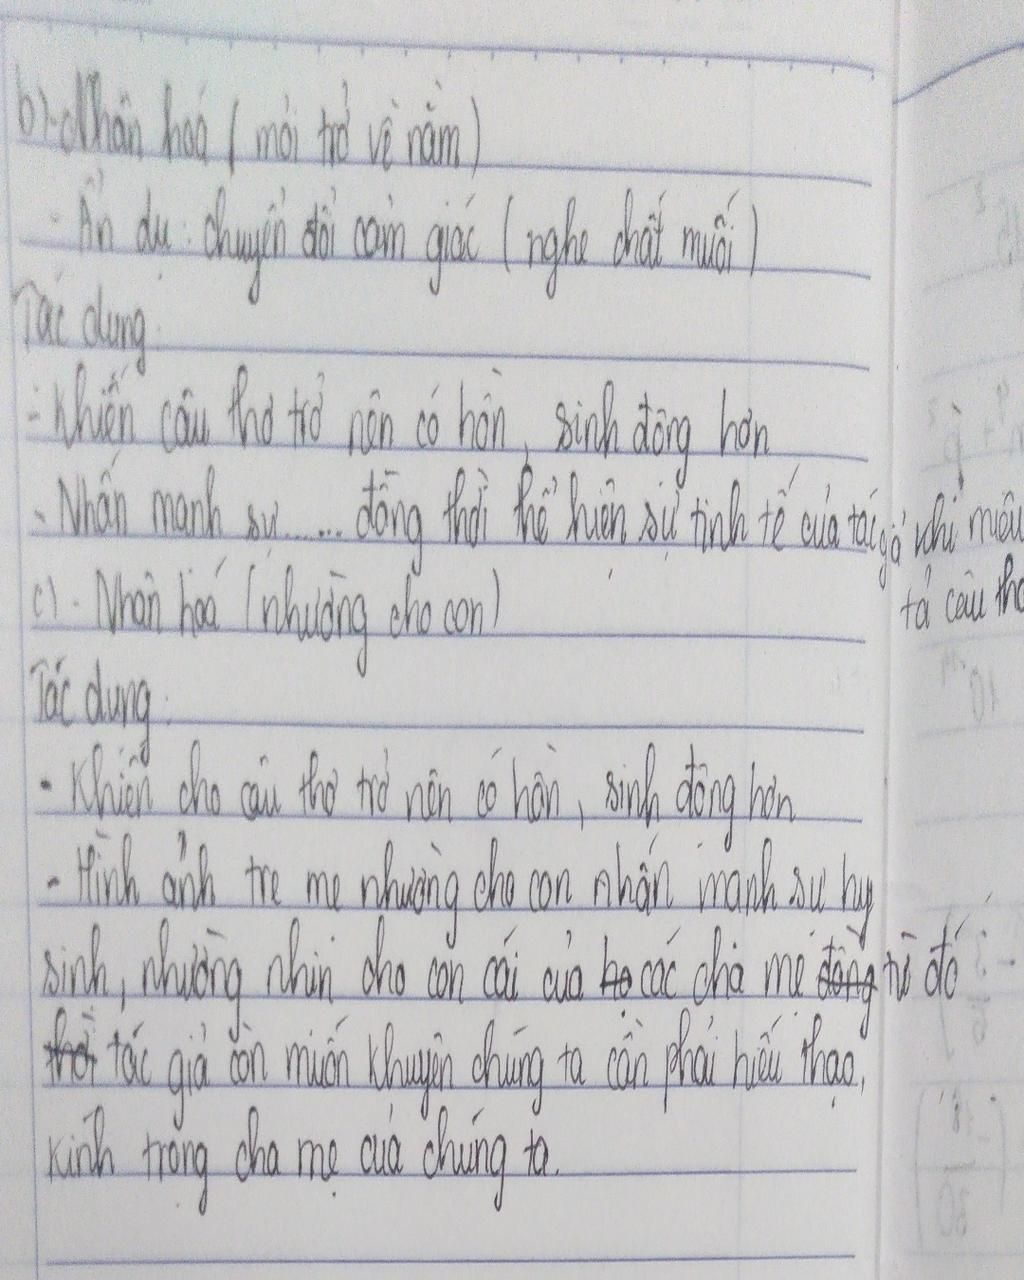 b) - Nhân hoá (mỏi trở về nằm)
- Ẩn dụ: chuyển đổi cảm giác (nghe chất muối)
Tác dụng:
- Khiến câu thơ trở nên có hồn, sinh động hơn
- Nhấn mạnh sự ...... đồng thời thể hiện sự tinh tế của tác giả khi miêu
tả câu thơ
c) - Nhân hoá (nhường cho con)
Tác dụng:
- Khiến cho câu thơ trở nên có hồn, sinh động hơn
- Hình ảnh tre mẹ nhường cho con nhấn mạnh sự hy
sinh, nhường nhịn cho con cái của họ các cha mẹ đồng từ đó
thời tác giả còn muốn khuyên chúng ta cần phải hiếu thạo,
kính trọng cha mẹ của chúng ta.